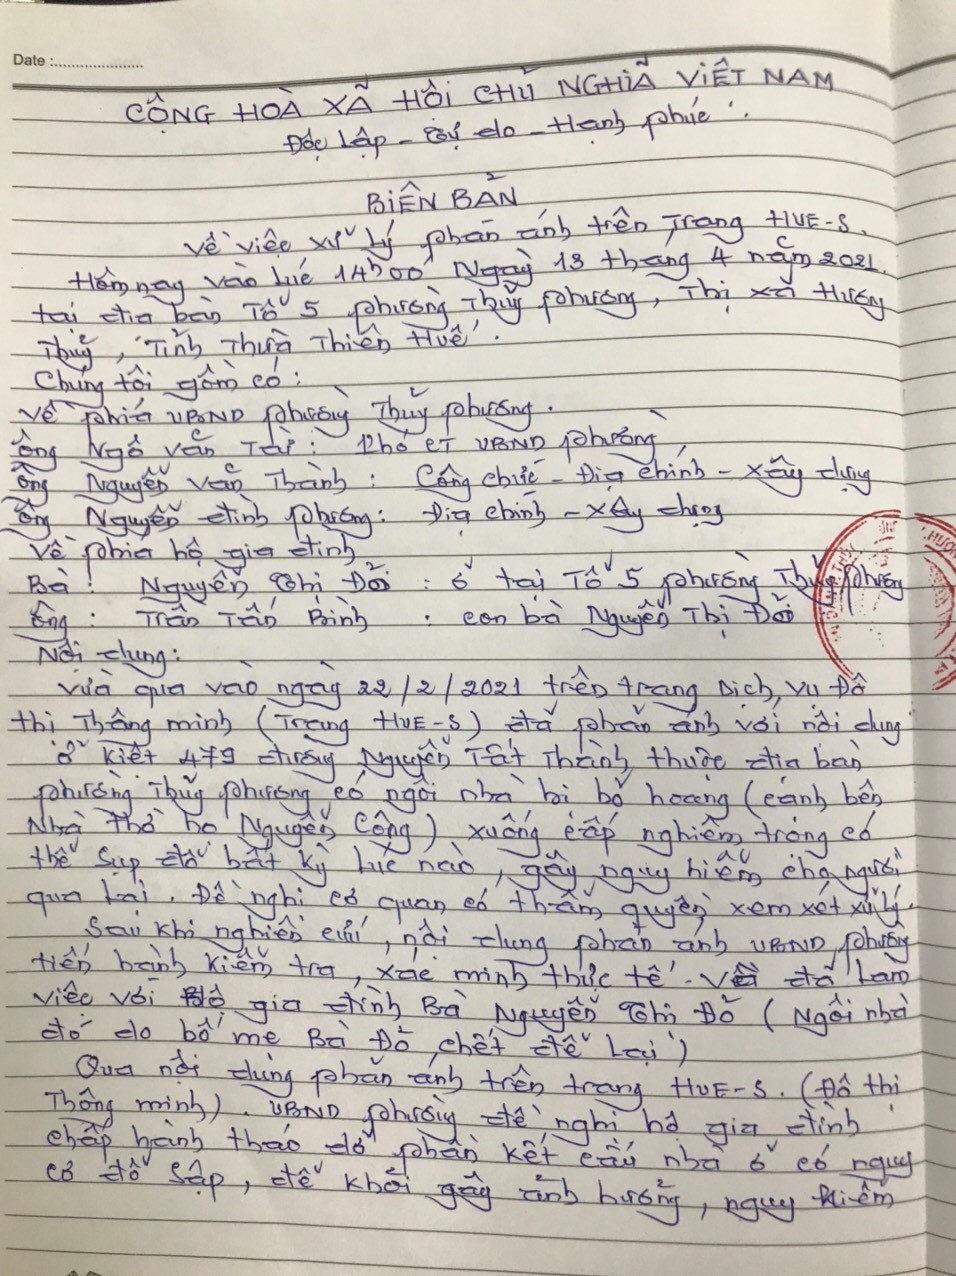 Date :......................
CỘNG HOÀ XÃ HỘI CHỦ NGHĨA VIỆT NAM
Độc lập - Tự do - Hạnh phúc.
BIÊN BẢN
Về việc xử lý phản ánh trên Trang HUE-S.
Hôm nay vào lúc 14h00' Ngày 13 tháng 4 năm 2021.
tại địa bàn Tổ 5 phường Thủy phương, Thị xã Hương
Thủy, Tỉnh Thừa Thiên Huế.
Chúng tôi gồm có:
Về phía UBND phường Thủy phương.
Ông Ngô Văn Tài : Phó CT UBND phường,
Ông Nguyễn Văn Thành : Công chức - Địa chính - Xây dựng
Ông Nguyễn đình phương: Địa chính - Xây dựng
Về phía hộ gia đình
Bà : Nguyễn Thị Đỗi : ở tại Tổ 5 phường Thủy phương
Ông : Trần Tấn Bình : con bà Nguyễn Thị Đỗi
Nội dung:
Vừa qua vào ngày 22/2/2021 trên trang Dịch vụ Đô
thị Thông minh (Trang HUE-S) đã phản ánh với nội dung
ở kiệt 479 đường Nguyễn Tất Thành thuộc địa bàn
phường Thủy phương có ngôi nhà bị bỏ hoang (cánh bên
Nhà thờ họ Nguyễn Công) xuống cấp nghiêm trọng có
thể sụp đổ bất kỳ lúc nào, gây nguy hiểm cho người
qua lại. Đề nghị cơ quan có thẩm quyền xem xét xử lý.
Sau khi nghiên cứu, nội dung phản ánh UBND phường
tiến hành kiểm tra, xác minh thực tế. Và đã làm
việc với hộ gia đình Bà Nguyễn Thị Đỗ (Ngôi nhà
đó do bố mẹ Bà Đỗ chết để lại)
Qua nội dung phản ánh trên trang HUE-S. (Đô thị
Thông minh). UBND phường đề nghị hộ gia đình
chấp hành tháo dỡ phần kết cấu nhà ở có nguy
cơ đổ sập, để khỏi gây ảnh hưởng, nguy hiểm